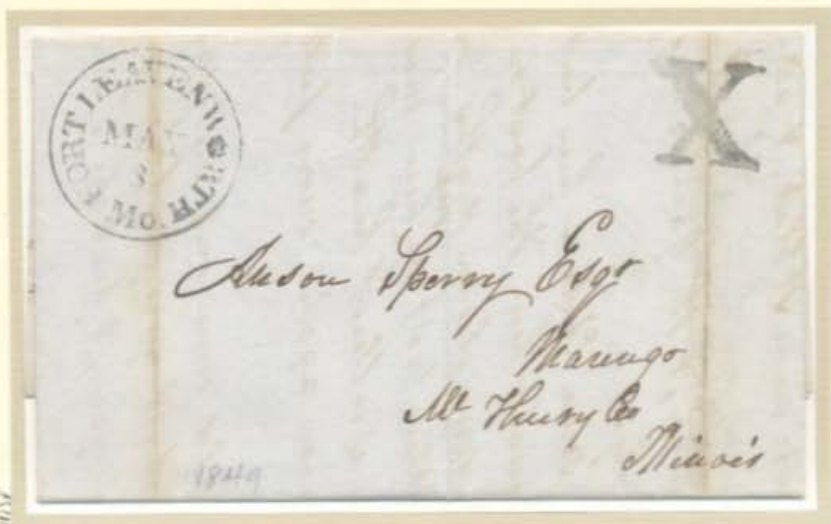 FORT LEAVENWORTH Mo.
MAY
X
Anson Sperry Esqr
Marengo
Mc Henry Co
Illinois
1849